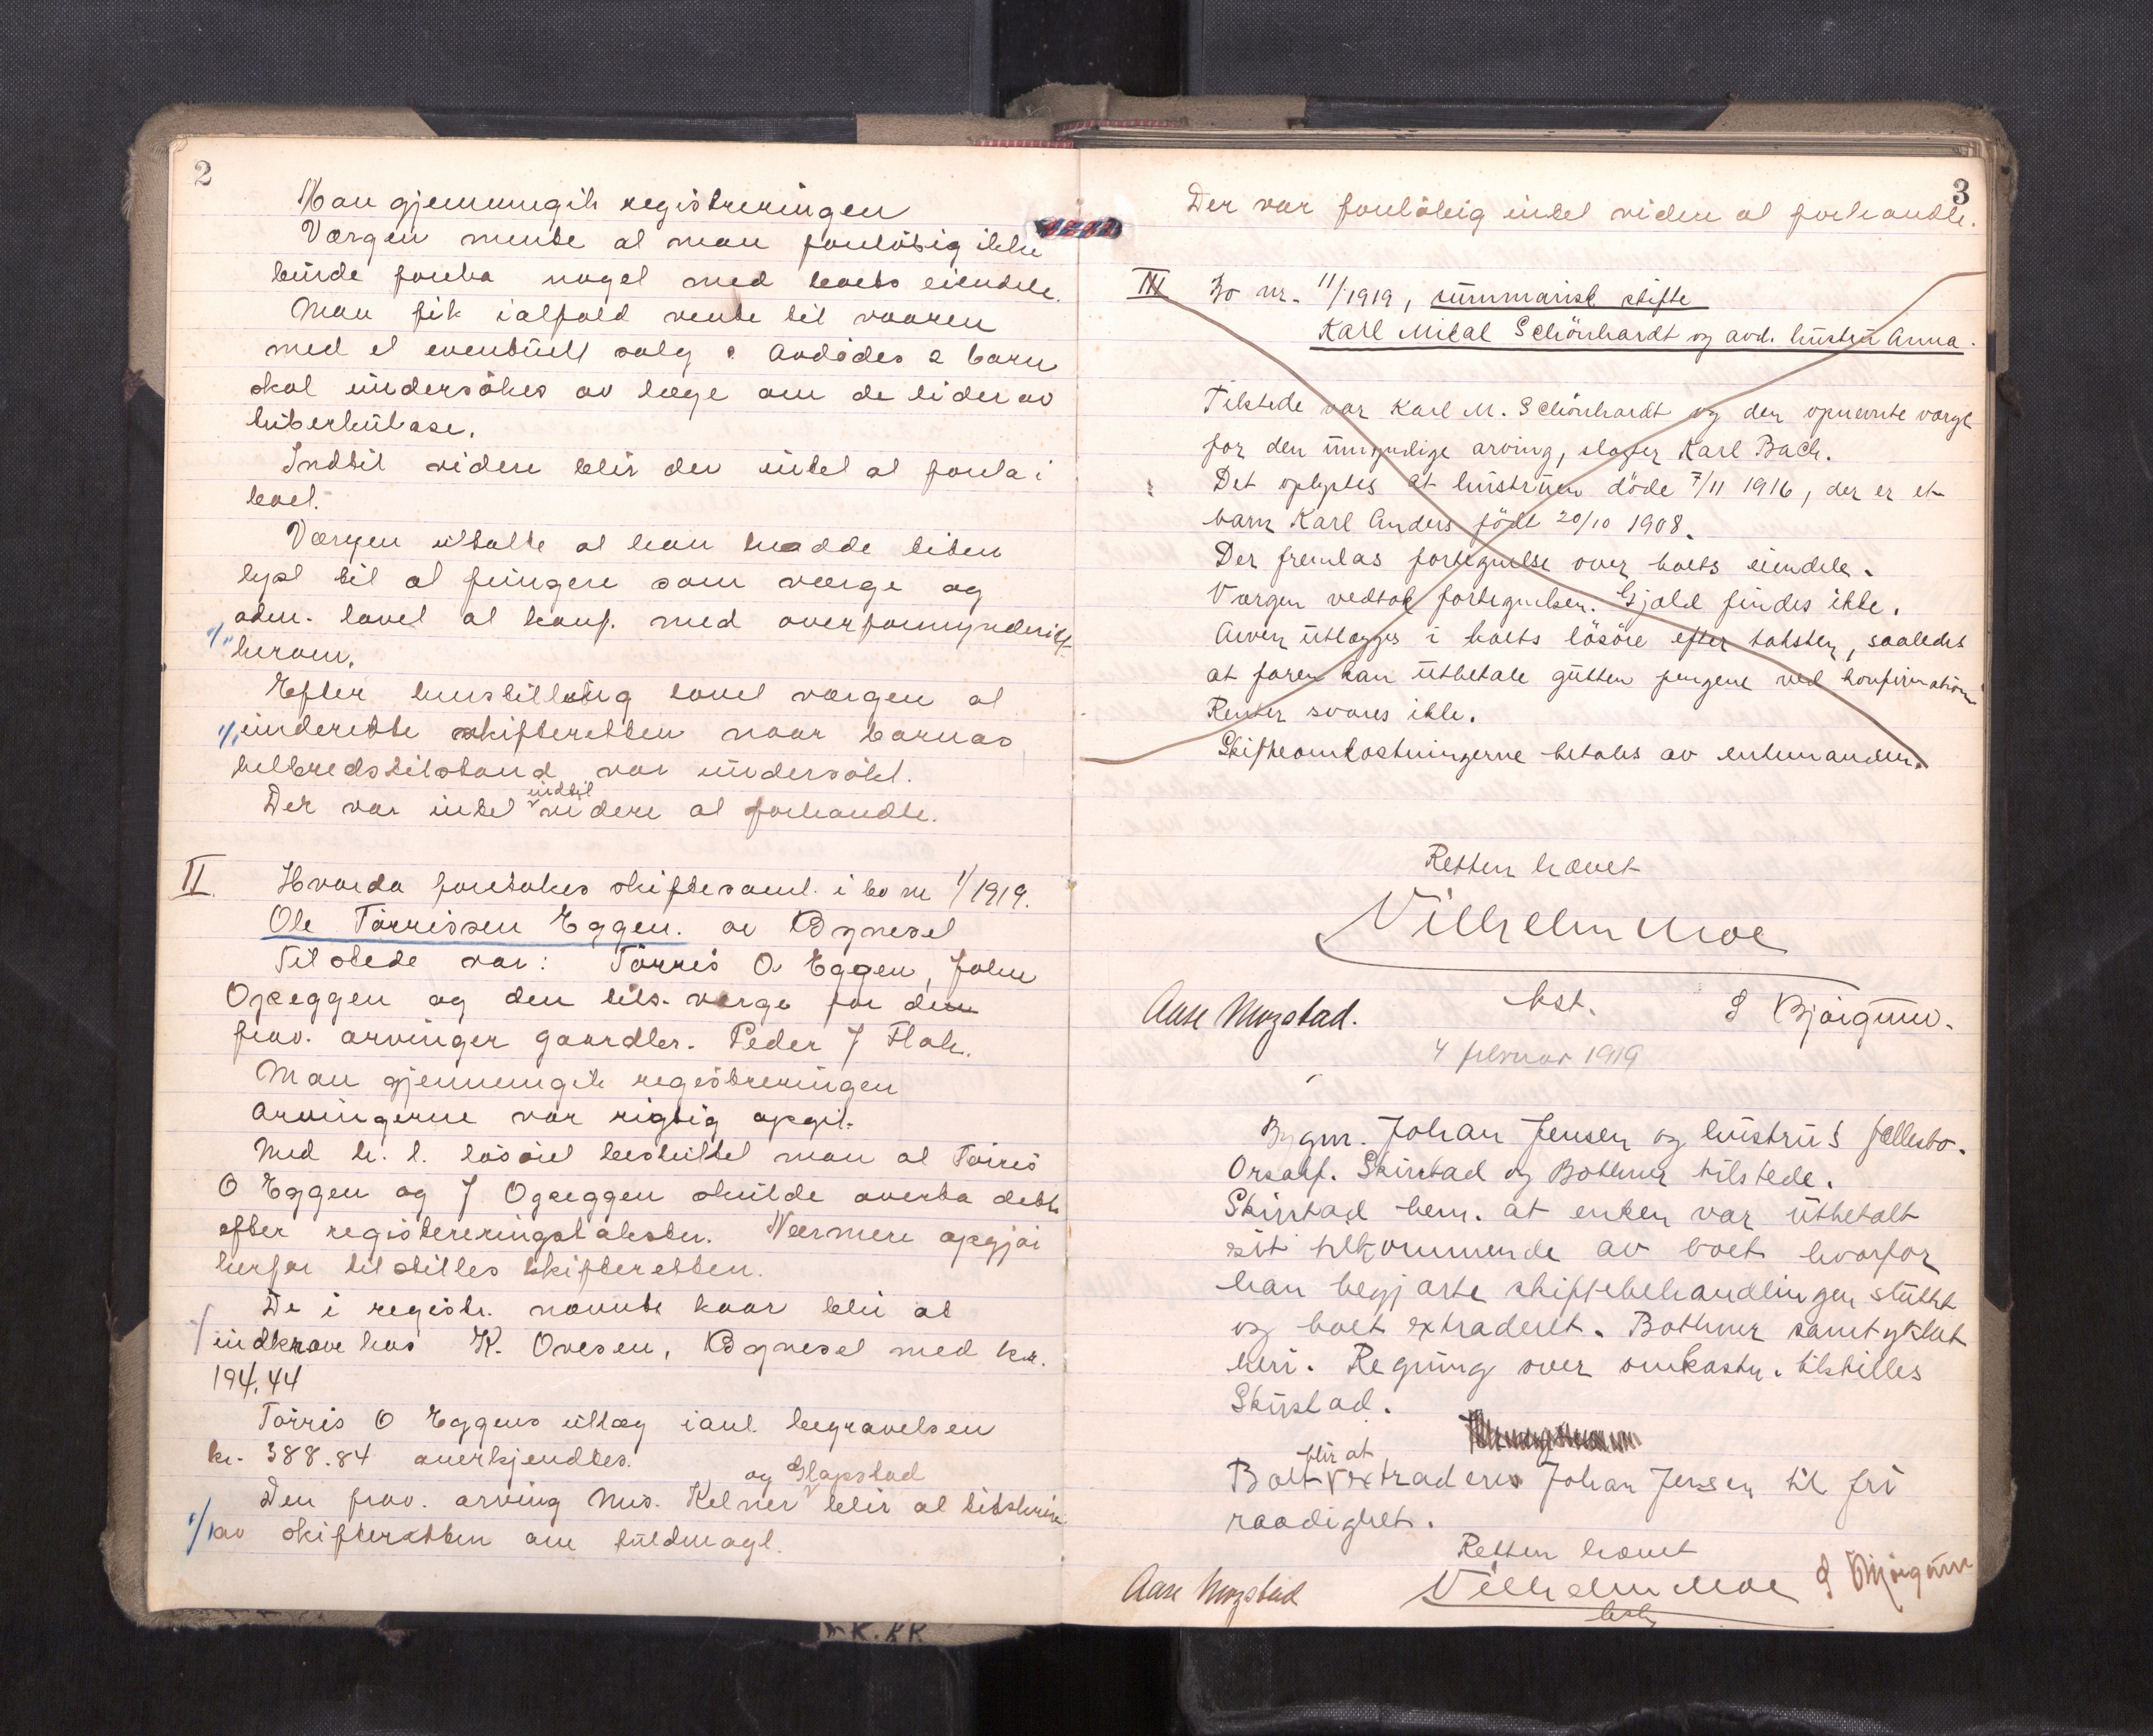 2
Man gjennemgik registreringen
Værgen mente at man foreløbig ikke
kunde foreta noget med boets eiendele.
Man fik ialfald vente til vaaren
med et eventuelt salg. Avdødes 2 barn
skal undersøkes av læge om de lider av
tuberkulose.
Indtil videre blir der intet at foreta i
boet.
Værgen uttalte at han hadde liten
lyst til at fungere som værge og
adm. lovet at konf. med overformynderiet
herom.
Efter henstilling lovet værgen at
underrette skifteretten naar barnas
helbredstilstand var undersøkt.
indtil
Der var intet videre at forhandle.
II. Hvorda foretokes skiftesaml. i bo nr 1/1919.
Ole Tørrissen Eggen. av Bynesset
Tilstede var: Tørris O Eggen, John
Opeggen og den tils. verge for den
frav. arvinger gaardbr. Peder J Flak.
Man gjennemgik registreringen
Arvingerne var rigtig opgit.
Med h. t. løsøret besluttet man at Tørris
O Eggen og J Opeggen skulde overta dette
efter registreringstaksten. Nærmere opgjør
herfor tilstilles skifteretten.
De i registr. nævnte kaar blir at
indkræve hos K. Ovesen, Bynesset med kr.
194.44
Tørris O Eggens utlæg i anl. begravelsen
kr. 388.84 anerkjendtes.
og Slapstad
Den frav. arving Mrs. Kelner blir at tilskrive
av skifteretten om fuldmagt.
3
Der var foreløbig intet videre at forhandle.
III Bo nr. 11/1919, summarisk skifte
Karl Mikal Schönhardt og avd. hustru Anna.
Tilstede var Karl M. Schönhardt og den opnevnte værge
for den umyndige arving, slagter Karl Bach.
Det oplystes at hustruen døde 7/11 1916, der er et
barn Karl Anders født 20/10 1908.
Der fremlas fortegnelse over boets eiendele.
Værgen vedtok fortegnelsen. Gjæld findes ikke.
Arven utlægges i boets løsøre efter taksten, saaledes
at faren kan utbetale gutten pengene ved konfirmation
Renter svares ikke.
Skifteomkostningerne betales av enkemanden.
Retten hævet
Vilhelm Moe
kst.
Aase Mogstad. S Bjørgum.
4 februar 1919
Bygm. Johan Jensen og hustru's fællesbo.
Orsakf. Skirstad og Bothner tilstede.
Skirstad bem. at enken var utbetalt
sit tilkommende av boet hvorfor
han begjærte skiftebehandlingen sluttet
og boet extraderet. Bothner samtykket
heri. Regning over omkostn. tilstilles
Skirstad.
blir at
Boet extradere Johan Jensen til fri
raadighet.
Retten hævet
Aase Mogstad Vilhelm Moe S Bjørgum
kst.